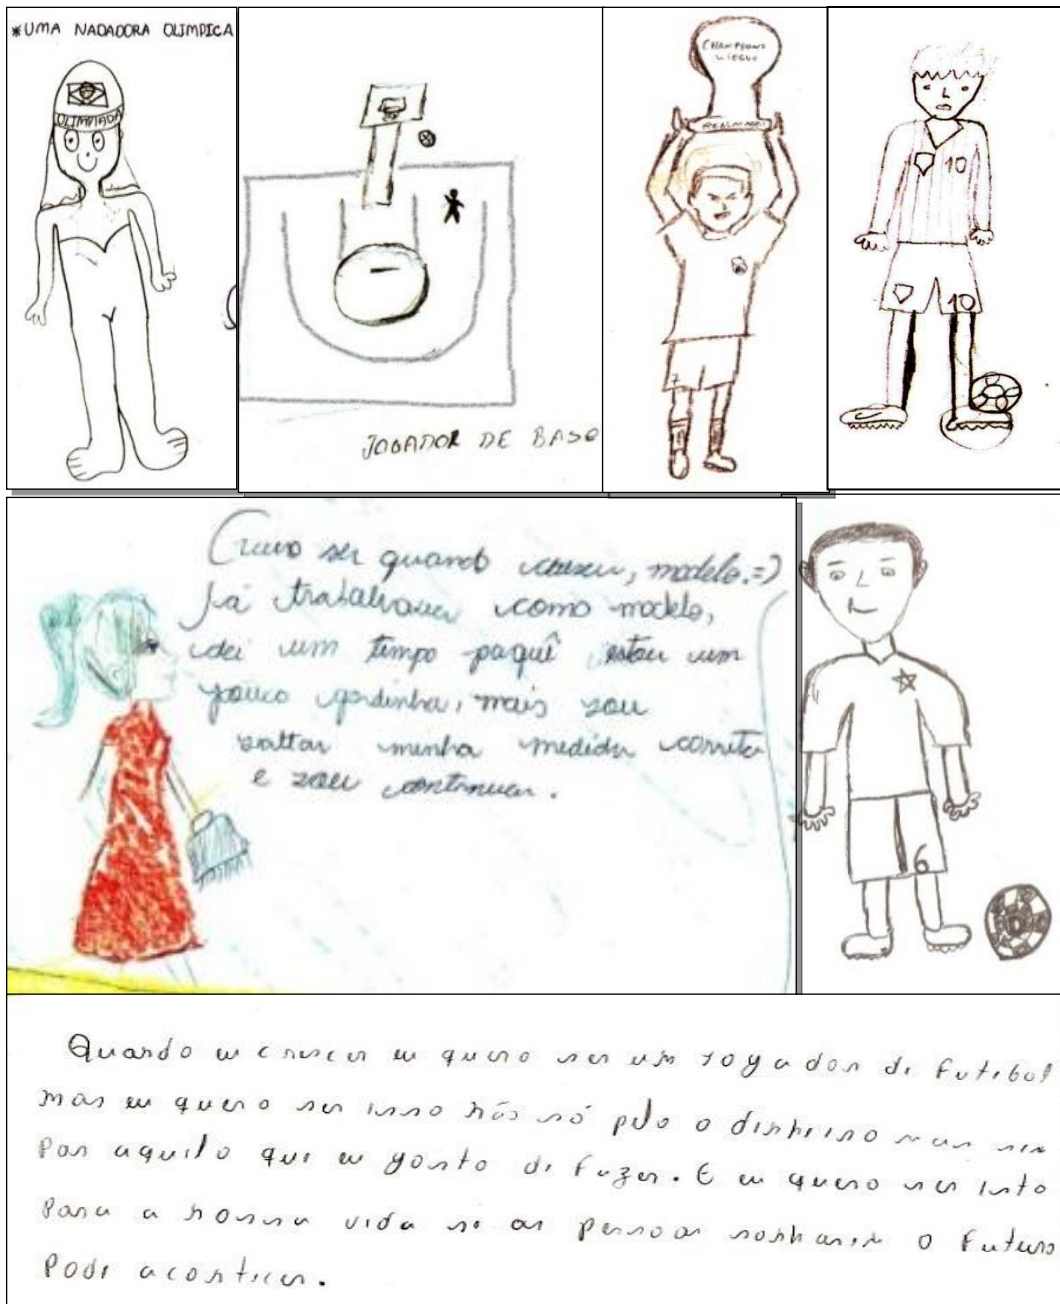 *UMA NADADORA OLIMPICA
OLIMPIADA
JOGADOR DE BASQ
CHAMPIONS
LIEGUE
REALMADRI
7
10
10
Quero ser quando crescer, modelo.=)
Já trabalhouer como modelo,
dei um tempo paquê estou um
pouco gordinha, mais vou
voltar minha medida correta
e vou continuar.
6
Quando eu crescer eu quero ser um jogador de futebol
mas eu quero ser isso não só pelo o dinheiro mas sim
Por aquilo que eu gosto de fazer. E eu quero ser isto
Para a nossa vida se as pessoas sonharem o futuro
Pode acontecer.